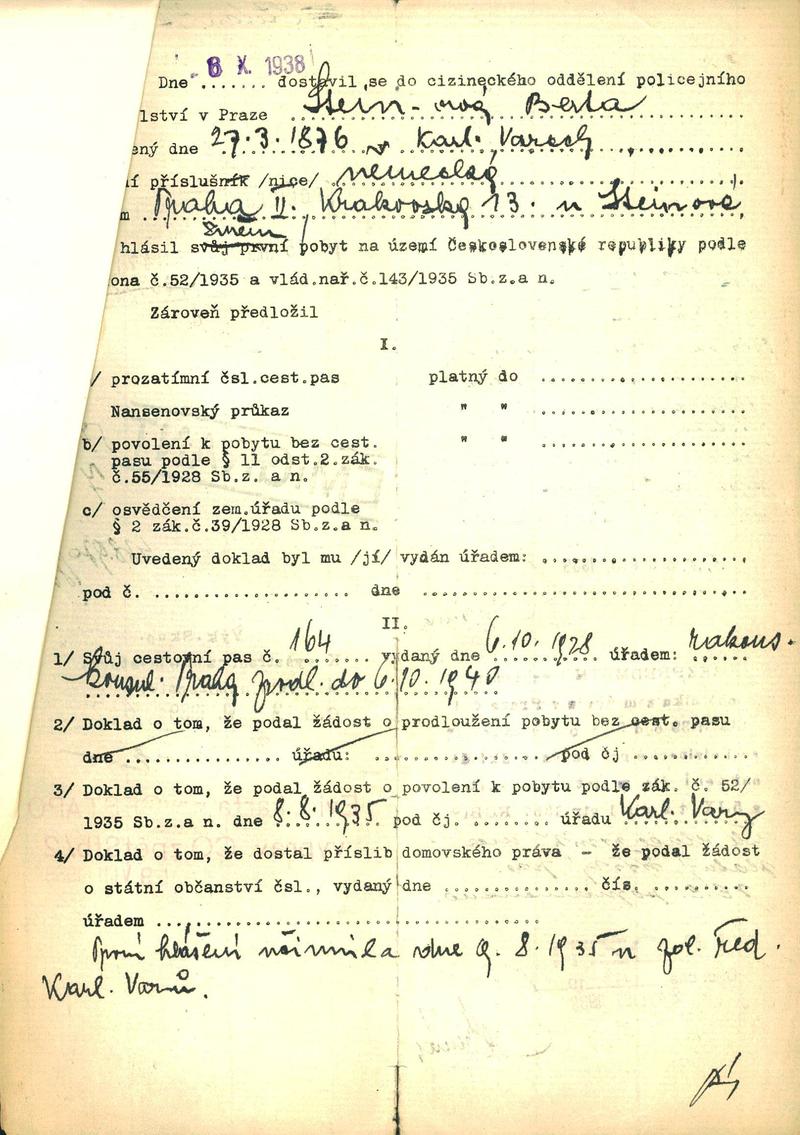 8 X. 1938
Dne ........ dostavil se do cizineckého oddělení policejního
lství v Praze Berta
ený dne 27.3.1876 v Karl. Varech
í příslušník /nice/ německé
m Praha II. Krakovská 13. u Steinové
změn
hlásil svůj první pobyt na území Československé republiky podle
ona č.52/1935 a vlád.nař.č.143/1935 Sb.z.a n.
Zároveň předložil
I.
/ prozatímní čsl.cest.pas platný do ........................
Nansenovský průkaz " " ........................
b/ povolení k pobytu bez cest. " " ........................
pasu podle § 11 odst.2.zák.
č.55/1928 Sb.z. a n.
c/ osvědčení zem.úřadu podle
§ 2 zák.č.39/1928 Sb.z.a n.
Uvedený doklad byl mu /jí/ vydán úřadem: ........................
pod č. ....................... dne ........................
II.
1/ Svůj cestovní pas č. 164 vydaný dne 6.10.1928 úřadem: rakous.
konsul. Praha prodl. do 6.10.1940
2/ Doklad o tom, že podal žádost o prodloužení pobytu bez cest. pasu
dne ................ úřadu: .................... pod čj ..............
3/ Doklad o tom, že podal žádost o povolení k pobytu podle zák. č. 52/
1935 Sb.z.a n. dne 8.8.1935 pod čj. ........ úřadu Karl. Vary
4/ Doklad o tom, že dostal příslib domovského práva - že podal žádost
o státní občanství čsl., vydaný dne ................ čís. ..........
úřadem ........................................
První hlášení učinila dne 9.8.1935 u pol. řed.
Karl. Varů.